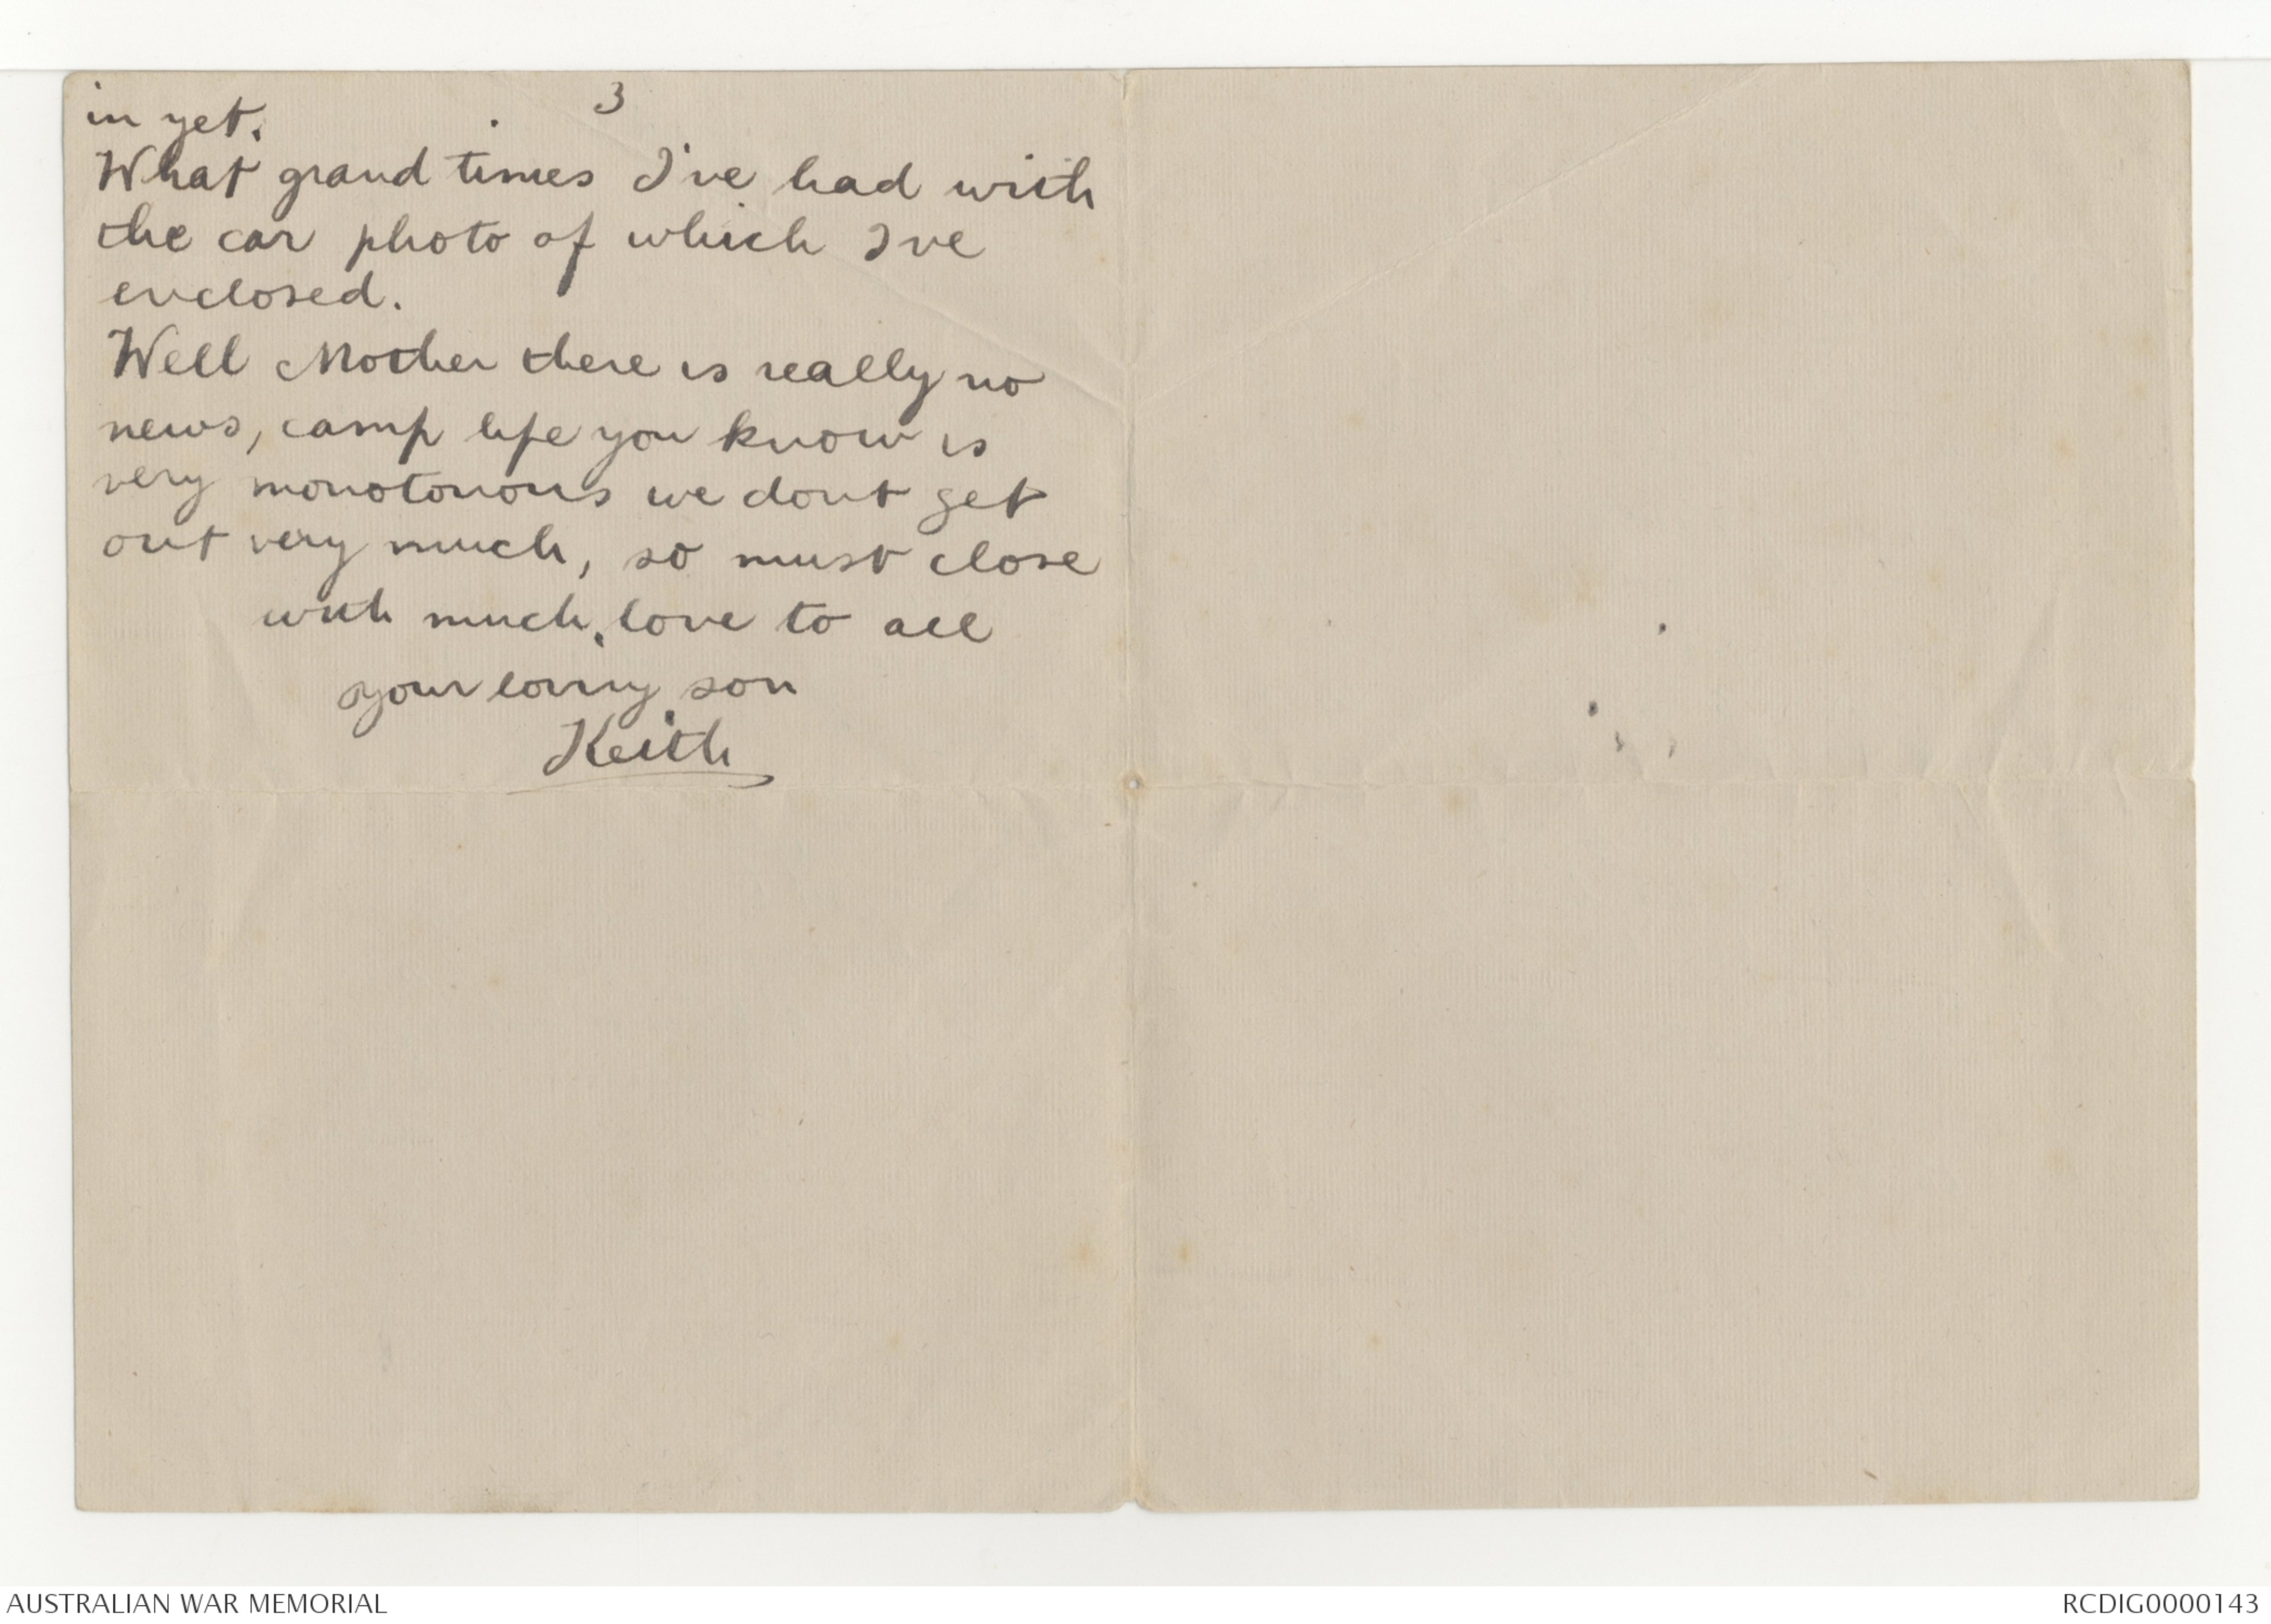 3
in yet.
What grand times I've had with
the car photo of which I've
enclosed.
Well Mother there is really no
news, camp life you know is
very monotonous we dont get
out very much, so must close
with much love to all
your loving son
Keith
AUSTRALIAN WAR MEMORIAL
RCDIG0000143